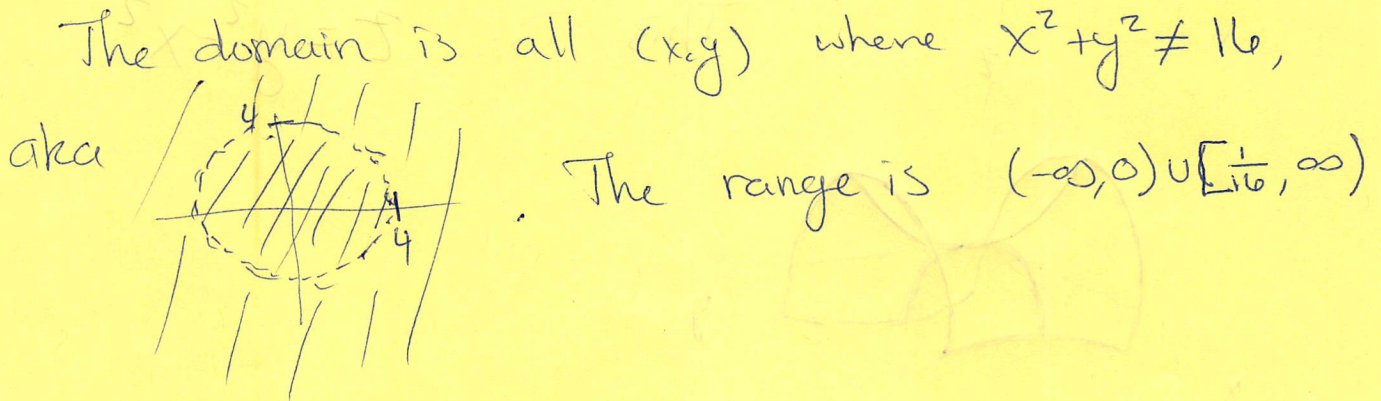 The domain is all (x,y) where x² + y² ≠ 16,
4
aka
4
. The range is (-∞,0) ∪ [1/16, ∞)